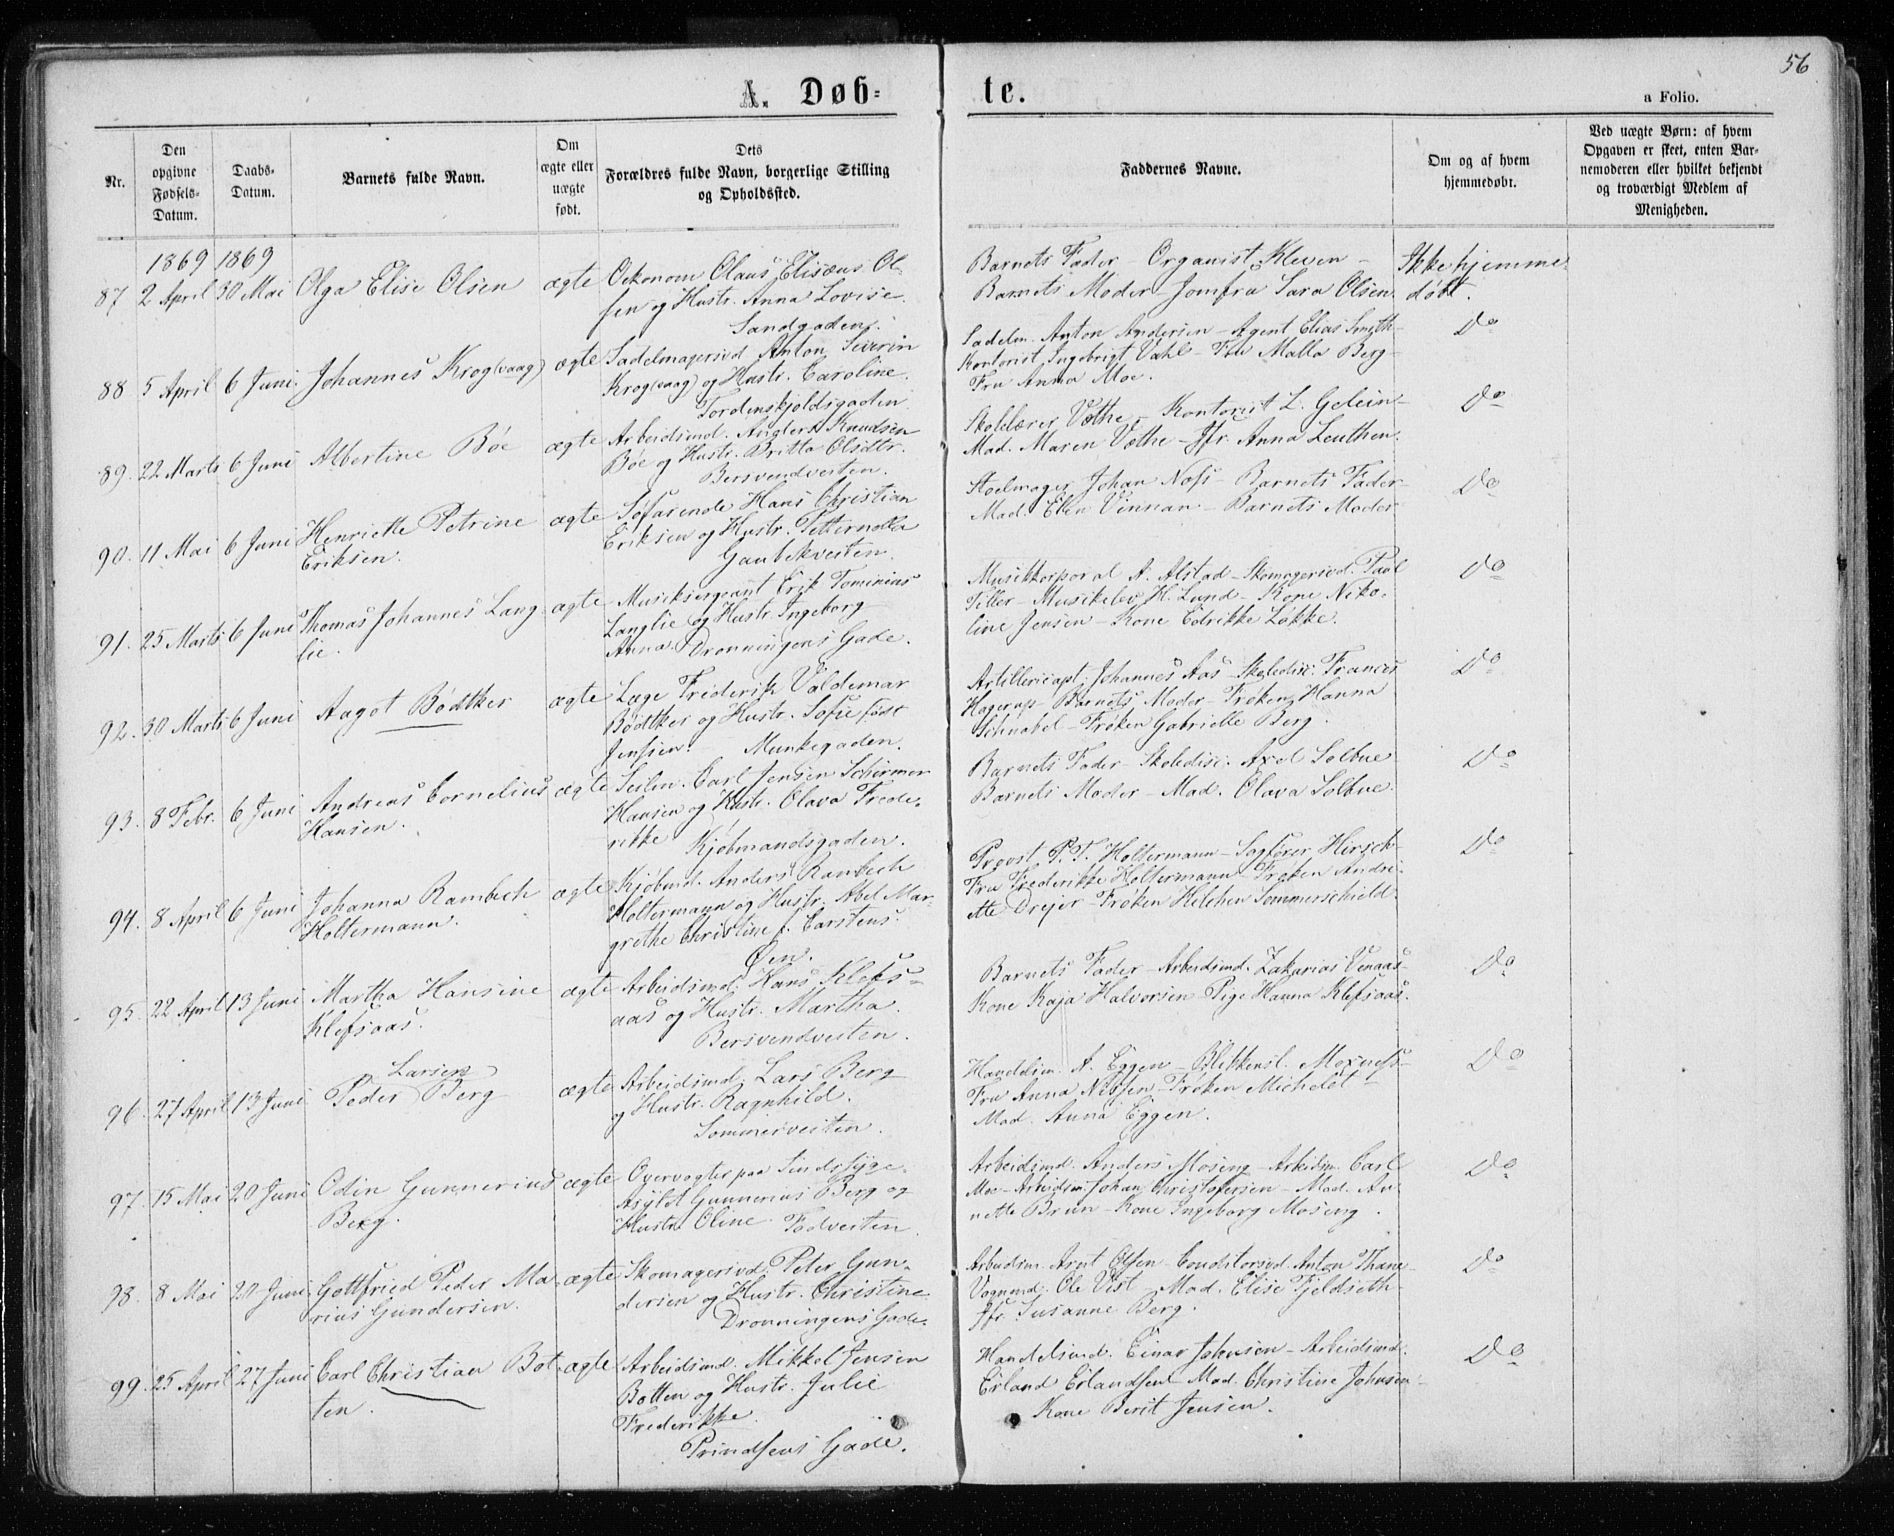 56
A. Døb-
te.
a Folio.
Nr.
Den
opgivne
Fødsels-
Datum.
Daabs-
Datum.
Barnets fulde Navn.
Om
ægte eller
uægte
født.
Dets
Forældres fulde Navn, borgerlige Stilling
og Opholdssted.
Faddernes Navne.
Om og af hvem
hjemmedøbt.
Ved uægte Børn: af hvem
Opgaven er skeet, enten Bar-
nemoderen eller hvilket bekjendt
og troværdigt Medlem af
Menigheden.
1869 1869
87 2 April 30 Mai Olga Elise Olsen ægte
Oekonom Olaus Elisæus Ol-
sen og Hustr. Anna Lovise.
Sandgaden.
Barnets Fader - Organist Kleven -
Barnets Moder - Jomfru Sara Olsen
Ikke hjemme
døbt.
88 5 April 6 Juni. Johannes Krog(vaag) ægte
Sadelmagersvd Anton Severin
Krog(vaag) og Hustr. Caroline.
Tordenskjoldsgaden
Sadelm. Anton Andersen - Agent Elias Smith -
Kontorist Ingebrigt Vahl - Malla Berg -
Fru Anna Moe.
Do
89. 22 Marts 6 Juni Albertine Bøe ægte
Arbeidsmd. Knudsen
Bøe og Hustr. Britta Olsdtr.
Bersvendvesten.
Skolelærer Vothe - Kontorist L. Gelein -
Mad. Maren Vothe - Jfr. Anna Leuthen.
Do
90. 11 Mai 6 Juni Henriette Petrine ægte
Eriksen.
Søfarende Hans Christian
Eriksen og Hustr. Petternella
Gaubækvesten.
Stolmager Johan Næss - Barnets Fader -
Mad. Elen Vinnan - Barnets Moder
Do
91. 25 Marts 6 Juni Thomas Johannes Lang- ægte
lie.
Musiksergeant Erik Tominius
Langlie og Hustr. Ingeborg
Anna. Dronningens Gade.
Musikkorporal A. Alstad - Skomagersvd. Paul
Tiller - Musikelev H. Lund - Kone Niko-
line Jensen - Kone Edrikke Løkke.
Do
92. 30 Marts 6 Juni Aagot Bødtker ægte
Læge Frederik Valdemar
Bødtker og Hustr. Sofie født
Jenssen. - Munkegaden.
Artillericapt: Johannes Aas - Skoledisc: Frances
Hagerup - Barnets Moder - Frøken Hanna
Schnabel - Frøken Gabrielle Berg.
Do
93. 8 Febr. 6 Juni Andreas Cornelius ægte
Hansen.
Seilm. Carl Jensen Schirmer
Hansen og Hustr. Olava Frede-
rikke Kjøbmandsgaden.
Barnets Fader - Skoledisc. Axel Solbue
Barnets Moder - Mad. Olava Solbue.
Do
94. 8 April 6 Juni Johanna Rambech ægte
Holtermann.
Kjøbmd. Anders Rambech
Holtermann og Hustr. Abel Mar-
grethe Christine f. Carstens.
Øen.
Provst P. T. Holtermann - Sagfører Hirsch -
Fru Frederikke Holtermann - Frøken Andri-
ette Dreier - Frøken Helchen Sommerschield.
Do
95. 22 April 13 Juni Martha Hansine ægte
Klefsaas.
Arbeidsmd. Hans Klefs-
aas og Hustr. Martha.
Bersvendvesten.
Barnets Fader - Arbeidsmd. Zakarias Venaas -
Kone Kaja Halvorsen Pige Hanna Klefsaas.
Do
96. 27 April 13 Juni Larsen
Peder Berg ægte
Arbeidsmd. Lars Berg
og Hustr. Ragnhild.
Sommervesten.
Handelsm. A. Eggen - Blikkensl. Moxness -
Fru Anna Nissen - Frøken Michelet -
Mad. Anna Eggen.
Do
97. 15 Mai 20 Juni Odin Gunnerius ægte
Berg.
Overvogter paa Sindssyge-
Asylet Gunnerius Berg og
Hustr. Oline. Fodvesten.
Arbeidsmd. Anders Moseng - Arbeidsm. Carl
Moe - Arbeidsm. Johan Christofersen - Mad. An-
nette Brun - Kone Ingeborg Moseng.
Do
98. 8 Mai 20 Juni Gottfried Peder Ma- ægte
rius Gundersen.
Skomagersvd. Peter Gun-
dersen og Hustr. Christine.
Dronningens Gade.
Arbeidsm. Arnt Olsen - Conditorsvd. Anton Thane -
Vognmd. Ole Vist - Mad. Elise Fjeldseth -
Jfr. Susanne Berg.
Do
99. 25 April 27 Juni Carl Christian Bot- ægte
ten.
Arbeidsmd. Mikkel Jensen
Botten og Hustr. Julie
Frederikke.
Prindsens Gade.
Handelsmd. Einar Johnsen - Arbeidsmd.
Erland Erlandsen - Mad. Christine Johnsen -
Kone Berit Jensen.
Do